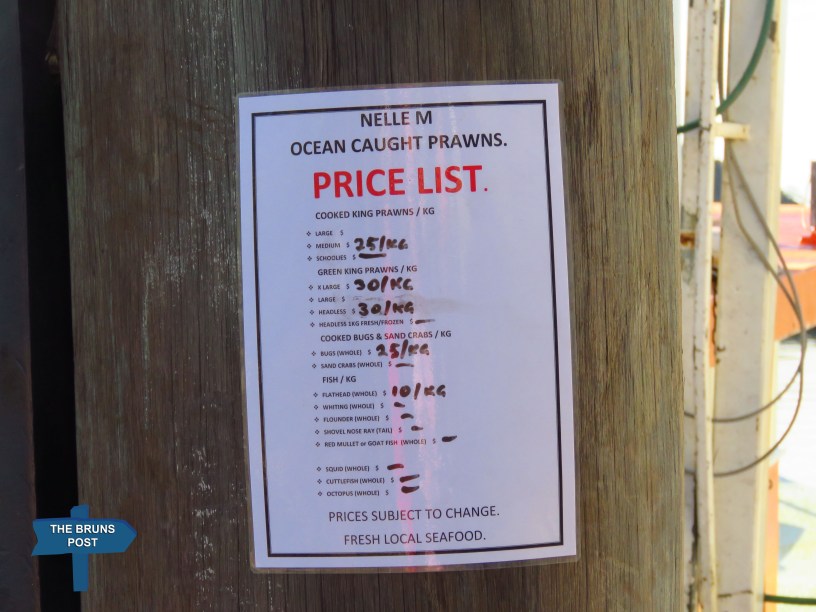 NELLE M
OCEAN CAUGHT PRAWNS.
PRICE LIST.
COOKED KING PRAWNS / KG
❖ LARGE $
❖ MEDIUM $ 25/KG
❖ SCHOOLIES $ —
GREEN KING PRAWNS / KG
❖ X LARGE $ 30/KG
❖ LARGE $
❖ HEADLESS $ 30/KG
❖ HEADLESS 1KG FRESH/FROZEN $ —
COOKED BUGS & SAND CRABS / KG
❖ BUGS (WHOLE) $ 25/KG
❖ SAND CRABS (WHOLE) $ —
FISH / KG
❖ FLATHEAD (WHOLE) $ 10/KG
❖ WHITING (WHOLE) $ —
❖ FLOUNDER (WHOLE) $ —
❖ SHOVEL NOSE RAY (TAIL) $ —
❖ RED MULLET or GOAT FISH (WHOLE) $ —
❖ SQUID (WHOLE) $ —
❖ CUTTLEFISH (WHOLE) $ —
❖ OCTOPUS (WHOLE) $ —
PRICES SUBJECT TO CHANGE.
FRESH LOCAL SEAFOOD.
THE BRUNS
POST